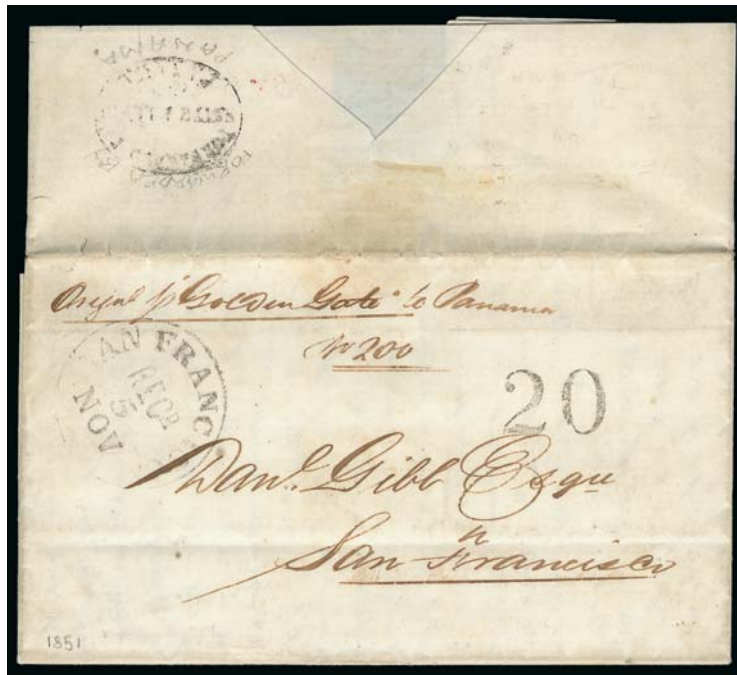 PANAMA
FORWARDED BY
Orig.al pr "Golden Gate" to Panama
No 200
SAN FRANC
RECD
5
NOV
20
Danl. Gibb Esqre
San Francisco
1851